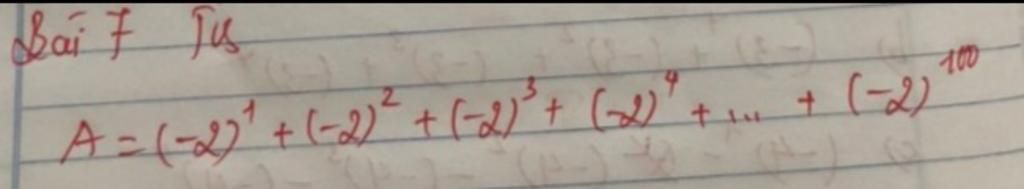 Bài 7
A = (-2)¹ + (-2)² + (-2)³ + (-2)⁴ + ... + (-2)¹⁰⁰